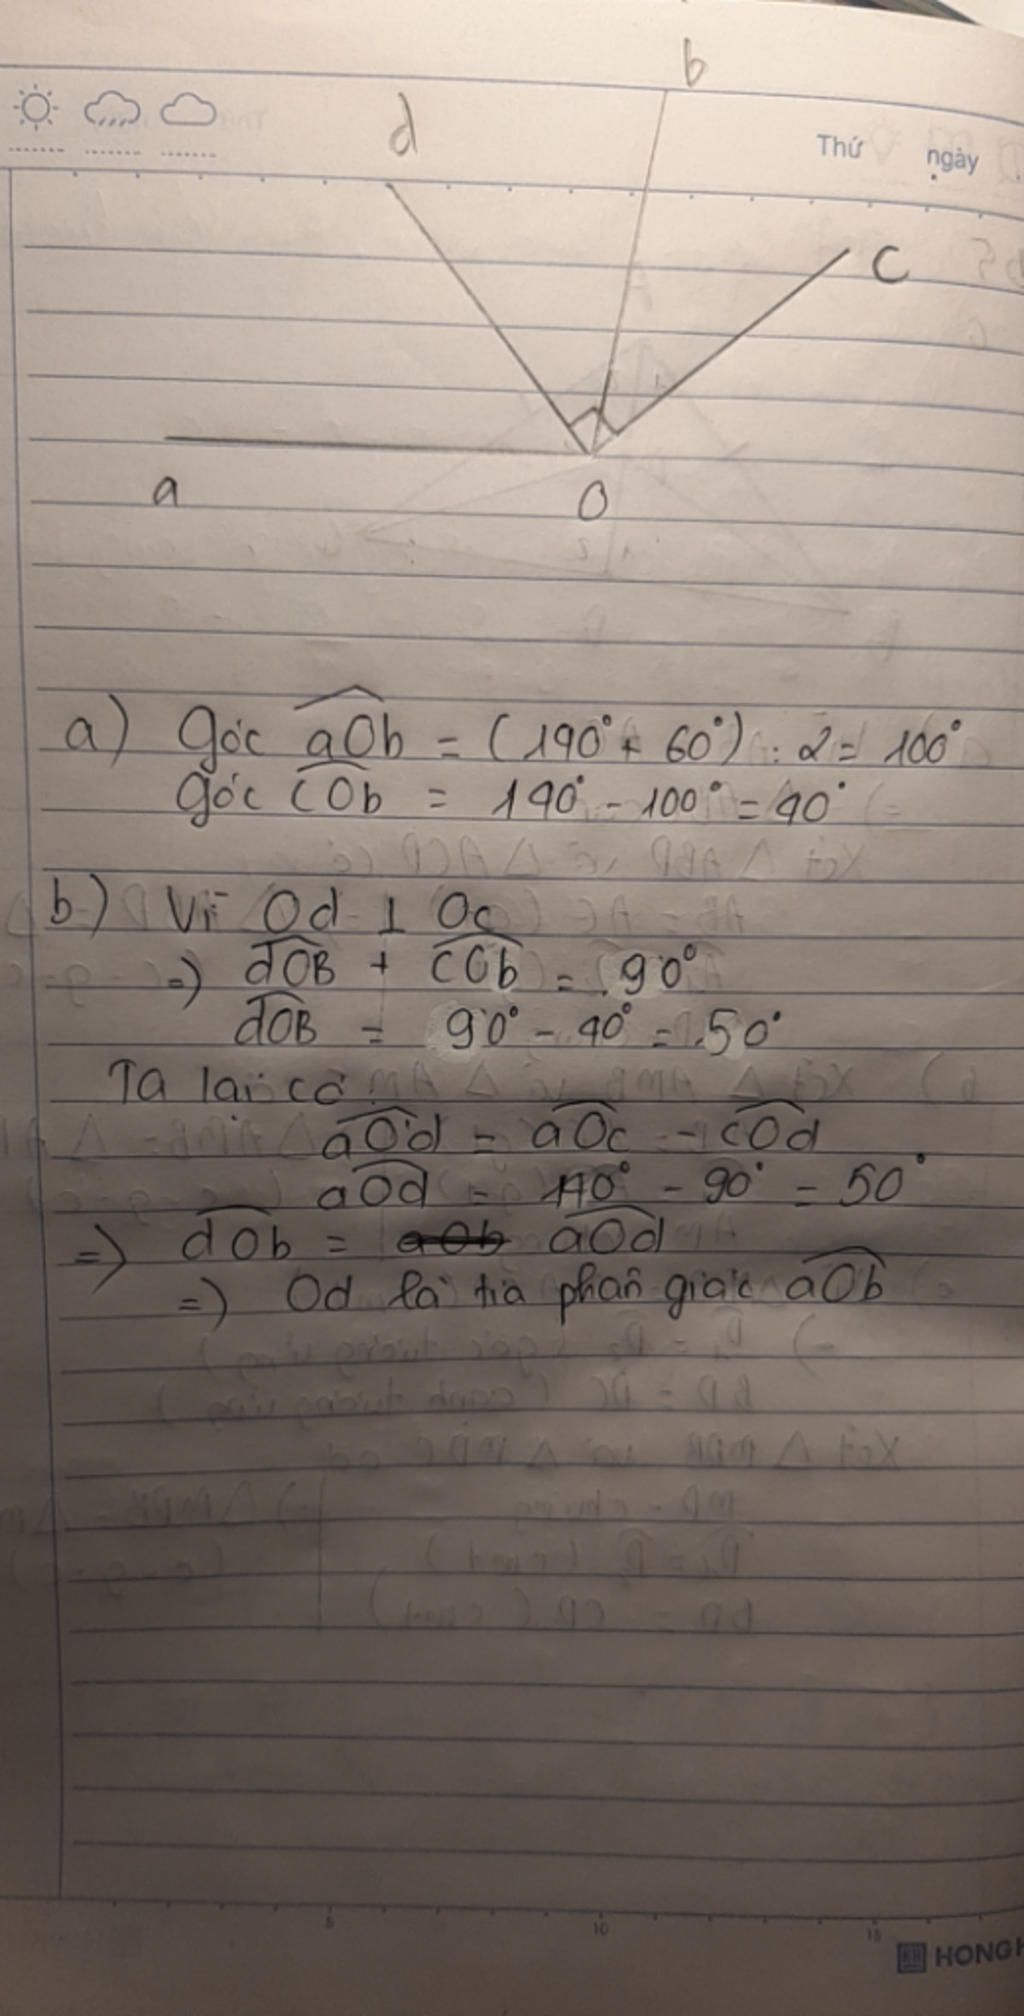 b
d
Thứ ngày
c
a
O
a) góc aOb = (140° + 60°) : 2 = 100°
góc cOb = 140° - 100° = 40°
b) Vì Od ⊥ Oc
=) dOB + cOb = 90°
dOB = 90° - 40° = 50°
Ta lại có
aOd = aOc - cOd
aOd = 140° - 90° = 50°
=) dOb = aOd
=) Od là tia phân giác aOb
5 10 15
HONG